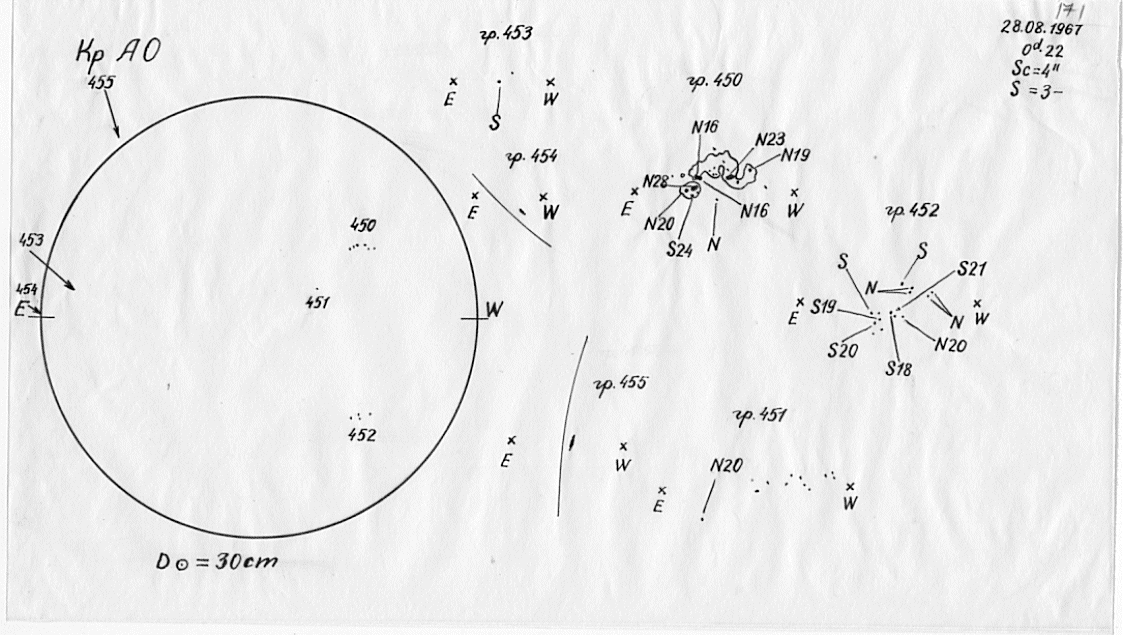 171
28.08.1967
0ᵈ.22
Sc=4"
S=3-
Кр АО
455
453
454
E
W
450
451
452
D☉=30cm
гр.453
× ×
E W
S
гр.454
× ×
E W
гр.450
N16
N23
N19
N28
× ×
E W
N20
S24
N
N16
гр.452
S
S
S21
N
× ×
E W
S19
N
S20
N20
S18
гр.455
× ×
E W
гр.451
N20
× ×
E W